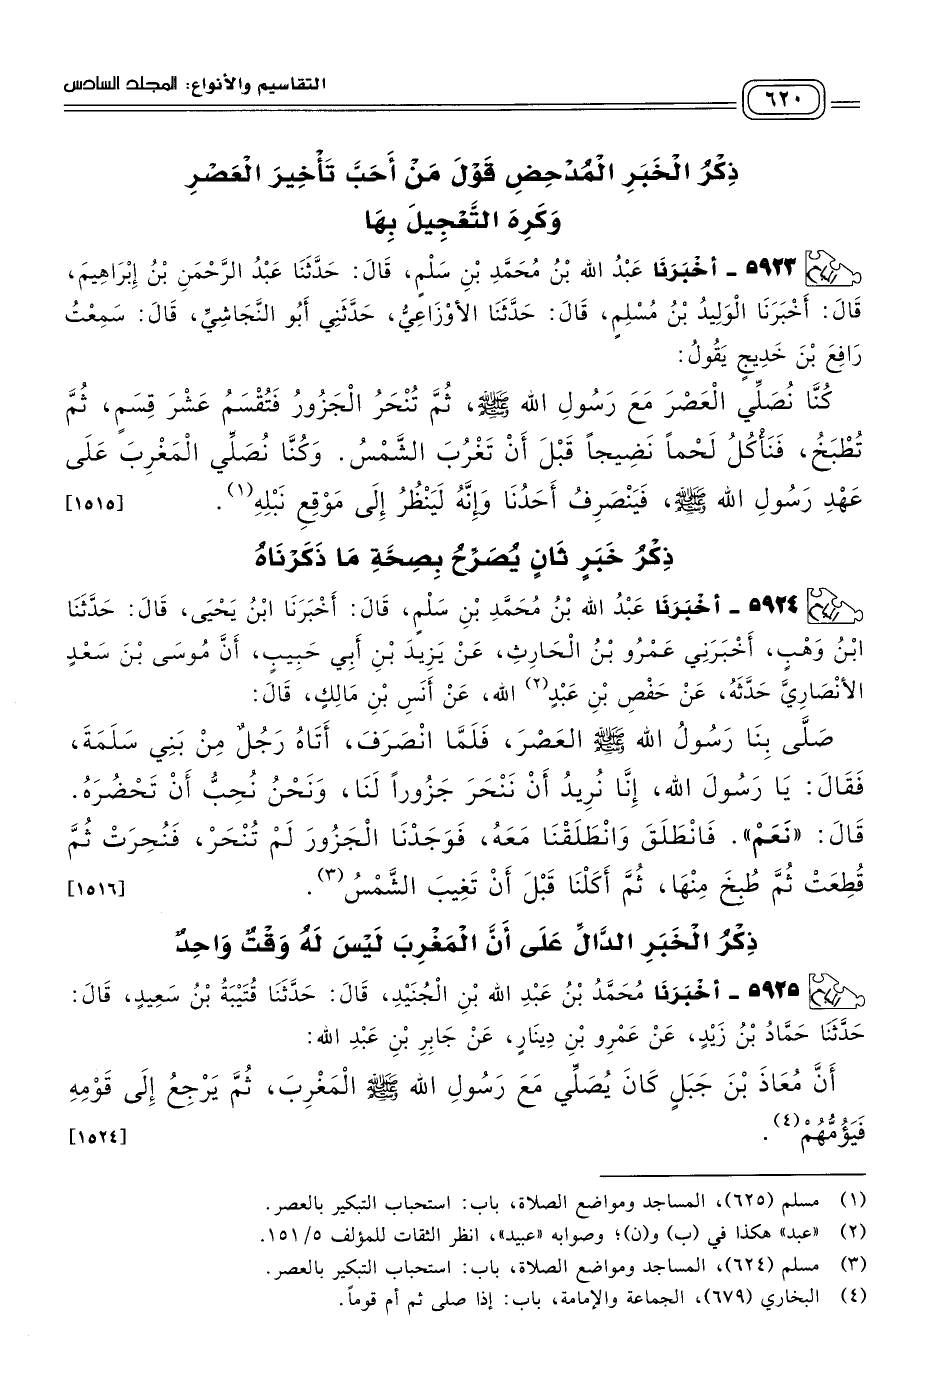 التقاسيم والأنواع: المجلد السادس
٦٢٠
ذِكْرُ الْخَبَرِ الْمُدْحِضِ قَوْلَ مَنْ أَحَبَّ تَأْخِيرَ الْعَصْرِ
وَكَرِهَ التَّعْجِيلَ بِهَا
٥٩٢٣ - أَخْبَرَنَا عَبْدُ الله بْنُ مُحَمَّدِ بْنِ سَلْمٍ، قَالَ: حَدَّثَنَا عَبْدُ الرَّحْمَنِ بْنُ إِبْرَاهِيمَ،
قَالَ: أَخْبَرَنَا الْوَلِيدُ بْنُ مُسْلِمٍ، قَالَ: حَدَّثَنَا الأَوْزَاعِيُّ، حَدَّثَنِي أَبُو النَّجَاشِيِّ، قَالَ: سَمِعْتُ
رَافِعَ بْنَ خَدِيجٍ يَقُولُ:
كُنَّا نُصَلِّي الْعَصْرَ مَعَ رَسُولِ الله ﷺ، ثُمَّ تُنْحَرُ الْجَزُورُ فَتُقْسَمُ عَشْرَ قِسَمٍ، ثُمَّ
تُطْبَخُ، فَنَأْكُلُ لَحْماً نَضِيجاً قَبْلَ أَنْ تَغْرُبَ الشَّمْسُ. وَكُنَّا نُصَلِّي الْمَغْرِبَ عَلَى
عَهْدِ رَسُولِ الله ﷺ، فَيَنْصَرِفُ أَحَدُنَا وَإِنَّهُ لَيَنْظُرُ إِلَى مَوْقِعِ نَبْلِهِ(١). [١٥١٥]
ذِكْرُ خَبَرٍ ثَانٍ يُصَرِّحُ بِصِحَّةِ مَا ذَكَرْنَاهُ
٥٩٢٤ - أَخْبَرَنَا عَبْدُ الله بْنُ مُحَمَّدِ بْنِ سَلْمٍ، قَالَ: أَخْبَرَنَا ابْنُ يَحْيَى، قَالَ: حَدَّثَنَا
ابْنُ وَهْبٍ، أَخْبَرَنِي عَمْرُو بْنُ الْحَارِثِ، عَنْ يَزِيدَ بْنِ أَبِي حَبِيبٍ، أَنَّ مُوسَى بْنَ سَعْدٍ
الأَنْصَارِيَّ حَدَّثَهُ، عَنْ حَفْصِ بْنِ عَبْدِ(٢) الله، عَنْ أَنَسِ بْنِ مَالِكٍ، قَالَ:
صَلَّى بِنَا رَسُولُ الله ﷺ العَصْرَ، فَلَمَّا انْصَرَفَ، أَتَاهُ رَجُلٌ مِنْ بَنِي سَلَمَةَ،
فَقَالَ: يَا رَسُولَ الله، إِنَّا نُرِيدُ أَنْ نَنْحَرَ جَزُوراً لَنَا، وَنَحْنُ نُحِبُّ أَنْ تَحْضُرَهُ.
قَالَ: «نَعَمْ». فَانْطَلَقَ وَانْطَلَقْنَا مَعَهُ، فَوَجَدْنَا الْجَزُورَ لَمْ تُنْحَرْ، فَنُحِرَتْ ثُمَّ
قُطِعَتْ ثُمَّ طُبِخَ مِنْهَا، ثُمَّ أَكَلْنَا قَبْلَ أَنْ تَغِيبَ الشَّمْسُ(٣). [١٥١٦]
ذِكْرُ الْخَبَرِ الدَّالِّ عَلَى أَنَّ الْمَغْرِبَ لَيْسَ لَهُ وَقْتٌ وَاحِدٌ
٥٩٢٥ - أَخْبَرَنَا مُحَمَّدُ بْنُ عَبْدِ الله بْنِ الْجُنَيْدِ، قَالَ: حَدَّثَنَا قُتَيْبَةُ بْنُ سَعِيدٍ، قَالَ:
حَدَّثَنَا حَمَّادُ بْنُ زَيْدٍ، عَنْ عَمْرِو بْنِ دِينَارٍ، عَنْ جَابِرِ بْنِ عَبْدِ الله:
أَنَّ مُعَاذَ بْنَ جَبَلٍ كَانَ يُصَلِّي مَعَ رَسُولِ الله ﷺ الْمَغْرِبَ، ثُمَّ يَرْجِعُ إِلَى قَوْمِهِ
فَيَؤُمُّهُمْ(٤). [١٥٢٤]
(١) مسلم (٦٢٥)، المساجد ومواضع الصلاة، باب: استحباب التبكير بالعصر.
(٢) «عبد» هكذا في (ب) و(ن)؛ وصوابه «عبيد»، انظر الثقات للمؤلف ١٥١/٥.
(٣) مسلم (٦٢٤)، المساجد ومواضع الصلاة، باب: استحباب التبكير بالعصر.
(٤) البخاري (٦٧٩)، الجماعة والإمامة، باب: إذا صلى ثم أم قوماً.